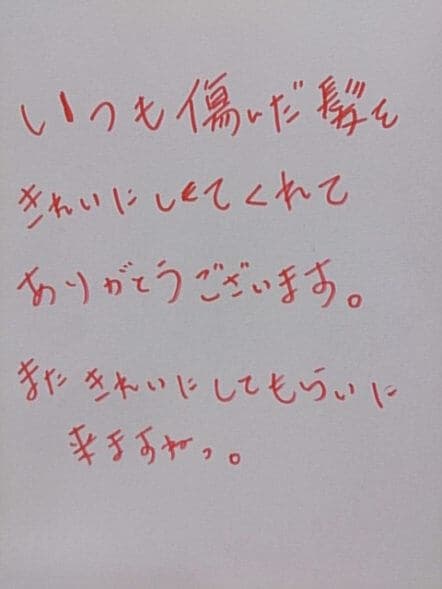 いつも傷いだ髪を
きれいにしてくれて
ありがとうございます。
またきれいにしてもらいに
来ますねっ。